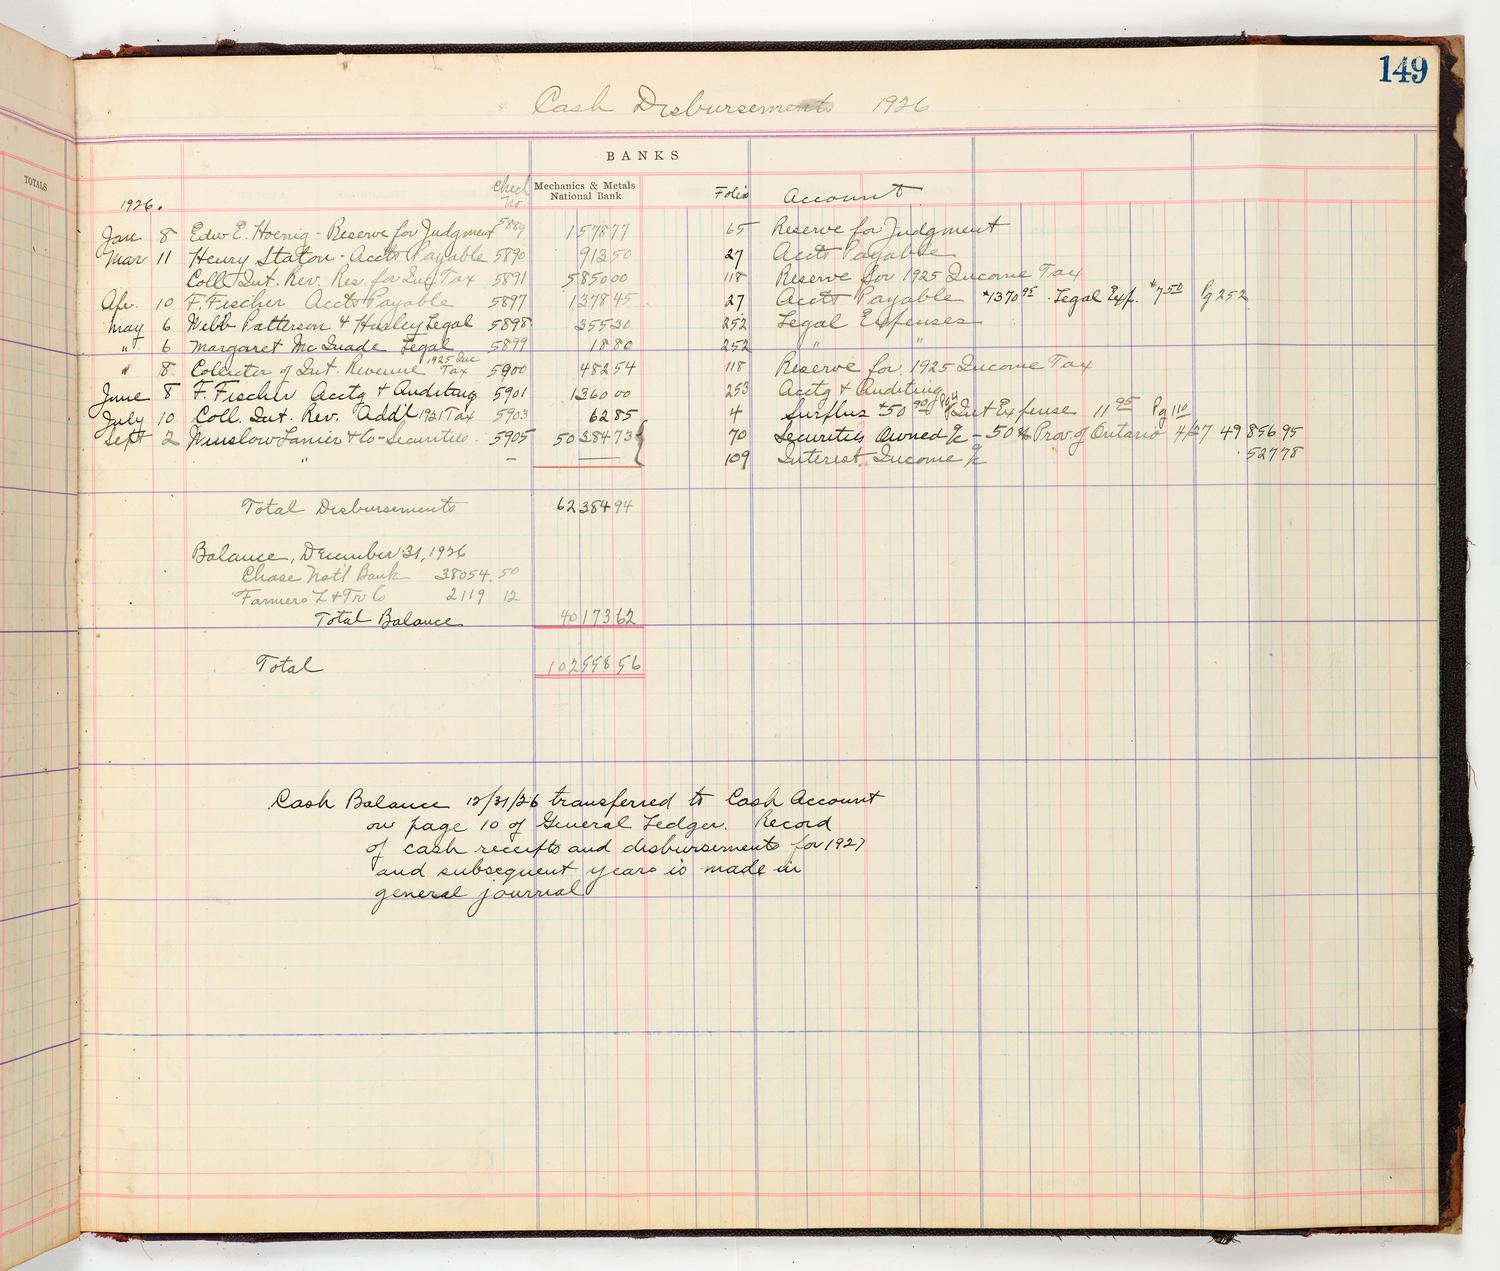 149
Cash Disbursements 1926
TOTALS
BANKS
1926. Check No. Mechanics & Metals National Bank Folio Account
Jan 8 Edw E. Hoenig - Reserve for Judgment 5889 1578 77 65 Reserve for Judgment
Mar 11 Henry Staton - Accts Payable 5890 913 50 27 Accts Payable
Coll Int. Rev. Res. for Inc Tax 5891 5850 00 118 Reserve for 1925 Income Tax
Apr. 10 F. Fischer Accts Payable 5897 1378 45 27 Accts Payable $1370 95 . Legal Exp. $7 50 Pg 252
May 6 Webb Patterson & Hurley Legal 5898 355 30 252 Legal Expenses
" 6 Margaret McQuade Legal 5899 18 80 252 " "
" 8 Collector of Int. Revenue 1925 Inc Tax 5900 482 54 118 Reserve for 1925 Income Tax
June 8 F. Fischer Acctg & Auditing 5901 1360 00 253 Acctg & Auditing
July 10 Coll. Int. Rev. Add'l 1921 Tax 5903 62 85 4 Surplus $50 90 Pg 4 Int Expense 11 95 Pg 110
Sept 2 Winslow Lanier & Co - Securities - 5905 50384 73 70 Securities Owned a/c - 50 M Prov. of Ontario 4/27 49856 95
" - — 109 Interest Income a/c 527 78
Total Disbursements 62384 94
Balance, December 31, 1926
Chase Nat'l Bank 38054.50
Farmers L & Tr Co 2119 12
Total Balance 40173 62
Total 102558 56
Cash Balance 12/31/26 transferred to Cash Account
on page 10 of General Ledger. Record
of cash receipts and disbursements for 1927
and subsequent years is made in
general journal